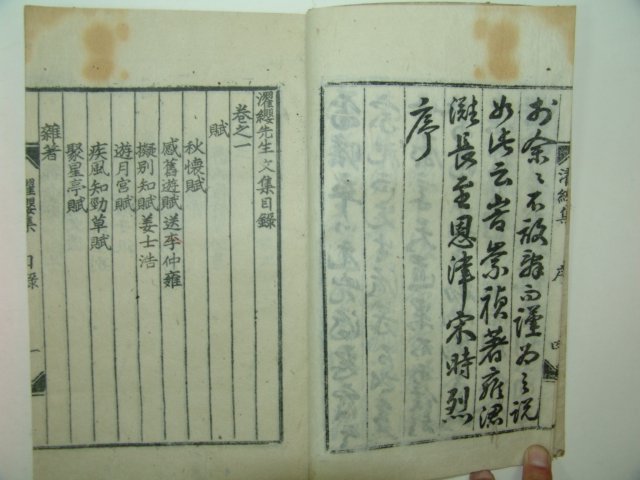 於余〻不敢辭而謹為之說
如此云峕崇禎著雍涒
灘長至恩津宋時烈
序
濯纓集 序 四
濯纓先生文集目錄
卷之一
賦
秋懷賦
感舊遊賦送李仲雍
擬別知賦姜士浩
遊月宮賦
疾風知勁草賦
聚星亭賦
雜著
濯纓集 目錄 一